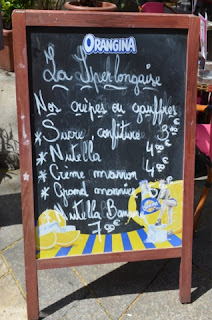 ORANGINA
La Sperlongaise
Nos crêpes ou gauffres
* Sucre, confiture 3,80€
* Nutella 4,80€
* Crème marron 4,80€
* Grand marnier
* Nutella Banane
7,80€